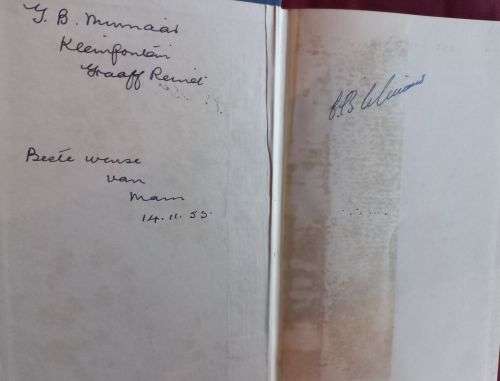 J. B. Minnaar
Kleinfontein
Graaff Reinet
Beste wense
van
Mam
14.11.55